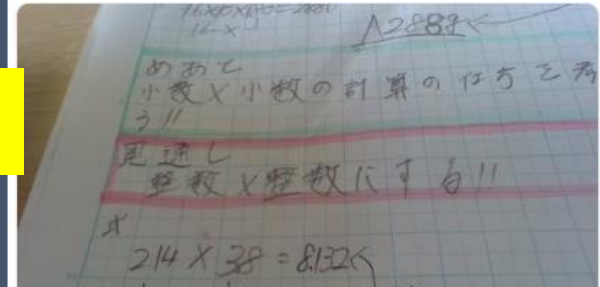 めあて
小数×小数の計算の仕方を考
う!!
見通し
整数×整数にする!!
式
214×38=8.132